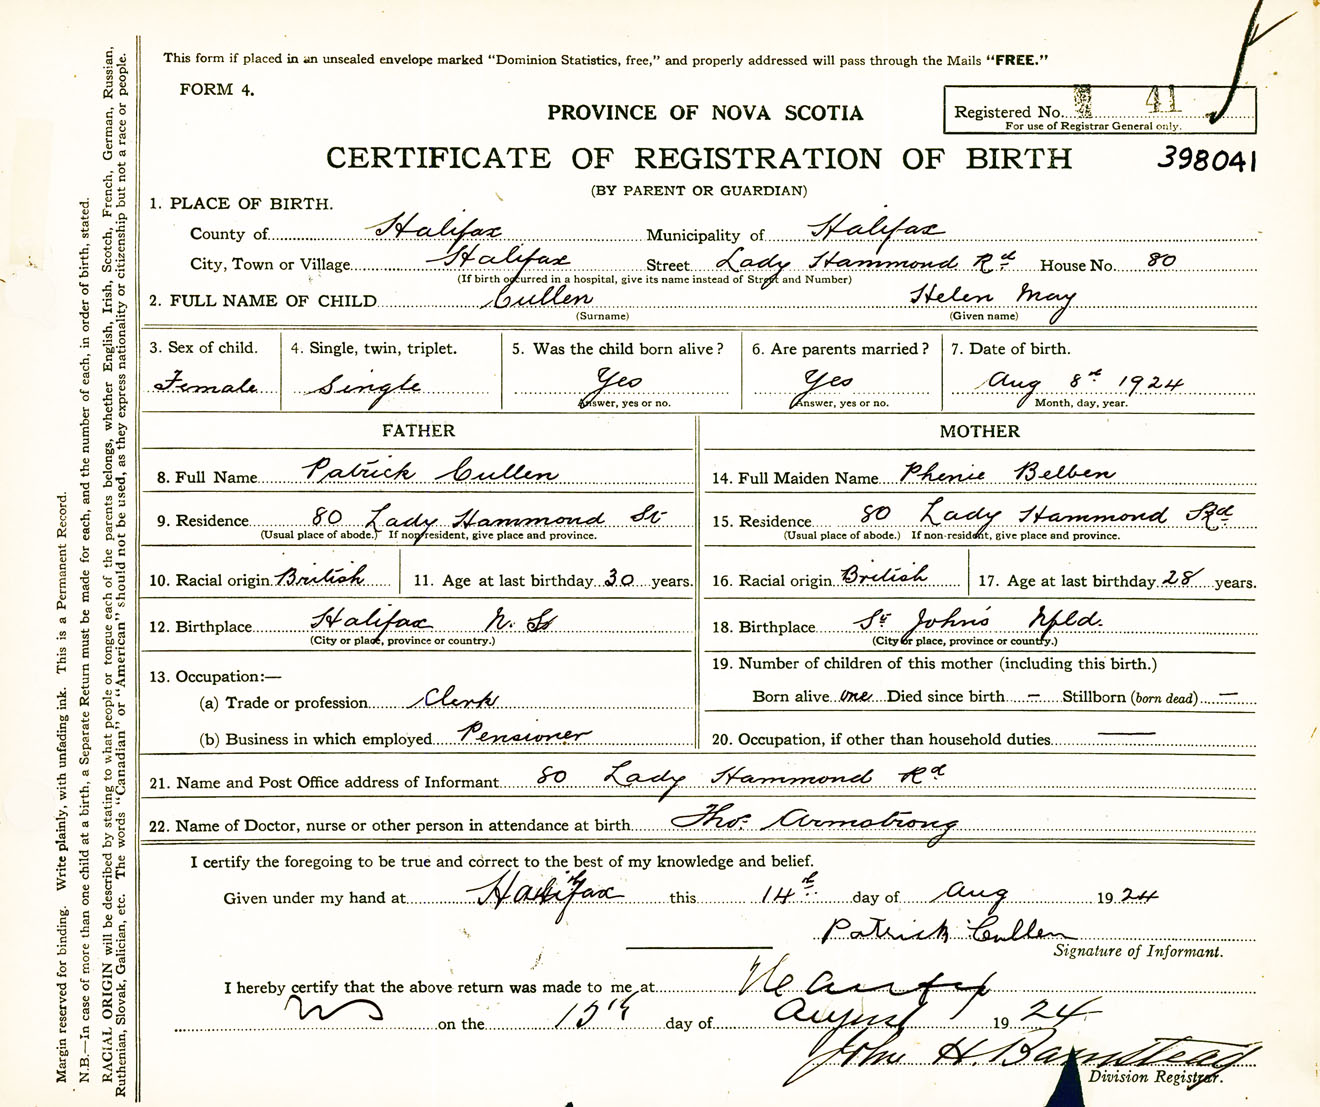 This form if placed in an unsealed envelope marked "Dominion Statistics, free," and properly addressed will pass through the Mails "FREE."
FORM 4.
PROVINCE OF NOVA SCOTIA
Registered No. 41
For use of Registrar General only.
CERTIFICATE OF REGISTRATION OF BIRTH
398041
(BY PARENT OR GUARDIAN)
1. PLACE OF BIRTH.
County of Halifax Municipality of Halifax
City, Town or Village Halifax Street Lady Hammond Rd House No. 80
(If birth occurred in a hospital, give its name instead of Street and Number)
2. FULL NAME OF CHILD Cullen Helen May
(Surname) (Given name)
3. Sex of child. 4. Single, twin, triplet. 5. Was the child born alive? 6. Are parents married? 7. Date of birth.
Female Single Yes Yes Aug 8th 1924
Answer, yes or no. Answer, yes or no. Month, day, year.
FATHER MOTHER
8. Full Name Patrick Cullen 14. Full Maiden Name Phenie Belben
9. Residence 80 Lady Hammond St 15. Residence 80 Lady Hammond Rd
(Usual place of abode.) If non-resident, give place and province. (Usual place of abode.) If non-resident, give place and province.
10. Racial origin British 11. Age at last birthday 30 years. 16. Racial origin British 17. Age at last birthday 28 years.
12. Birthplace Halifax N. S. 18. Birthplace St John's Nfld.
(City or place, province or country.) (City or place, province or country.)
13. Occupation:— 19. Number of children of this mother (including this birth.)
(a) Trade or profession Clerk Born alive one Died since birth — Stillborn (born dead) —
(b) Business in which employed Pensioner 20. Occupation, if other than household duties —
21. Name and Post Office address of Informant 80 Lady Hammond Rd
22. Name of Doctor, nurse or other person in attendance at birth Thos. Armstrong
I certify the foregoing to be true and correct to the best of my knowledge and belief.
Given under my hand at Halifax this 14th day of Aug 1924
Patrick Cullen
Signature of Informant.
I hereby certify that the above return was made to me at Halifax
NS on the 15th day of August 1924
John H. Barnstead
Division Registrar.
Margin reserved for binding. Write plainly, with unfading ink. This is a Permanent Record.
N.B.—In case of more than one child at a birth, a Separate Return must be made for each, and the number of each, in order of birth, stated.
RACIAL ORIGIN will be described by stating to what people or tongue each of the parents belongs, whether English, Irish, Scotch, French, German, Russian,
Ruthenian, Slovak, Galician, etc. The words "Canadian" or "American" should not be used, as they express nationality or citizenship but not a race or people.